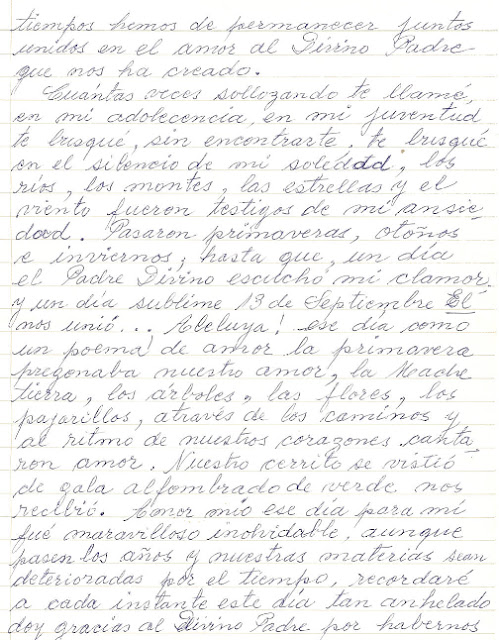 tiempos hemos de permanecer juntos
unidos en el amor al Divino Padre
que nos ha creado.
Cuántas veces sollozando te llamé,
en mi adolecencia, en mi juventud
te busqué, sin encontrarte, te busqué
en el silencio de mi soledad, los
ríos, los montes, las estrellas y el
viento fueron testigos de mi ansie-
dad. Pasaron primaveras, otoños
e inviernos, hasta que, un día
el Padre Divino escuchó mi clamor,
y un día sublime 13 de Septiembre Él
nos unió... Aleluya! ese día como
un poema! de amor la primavera
pregonaba nuestro amor, la Madre
tierra, los árboles, las flores, los
pajarillos, através de los caminos y
al ritmo de nuestros corazones canta-
ron amor. Nuestro cerrito se vistió
de gala alfombrado de verde nos
recibió. Amor mío ese día para mí
fué maravilloso inolvidable, aunque
pasen los años y nuestras materias sean
deterioradas por el tiempo, recordaré
a cada instante este día tan anhelado
doy gracias al Divino Padre por habernos